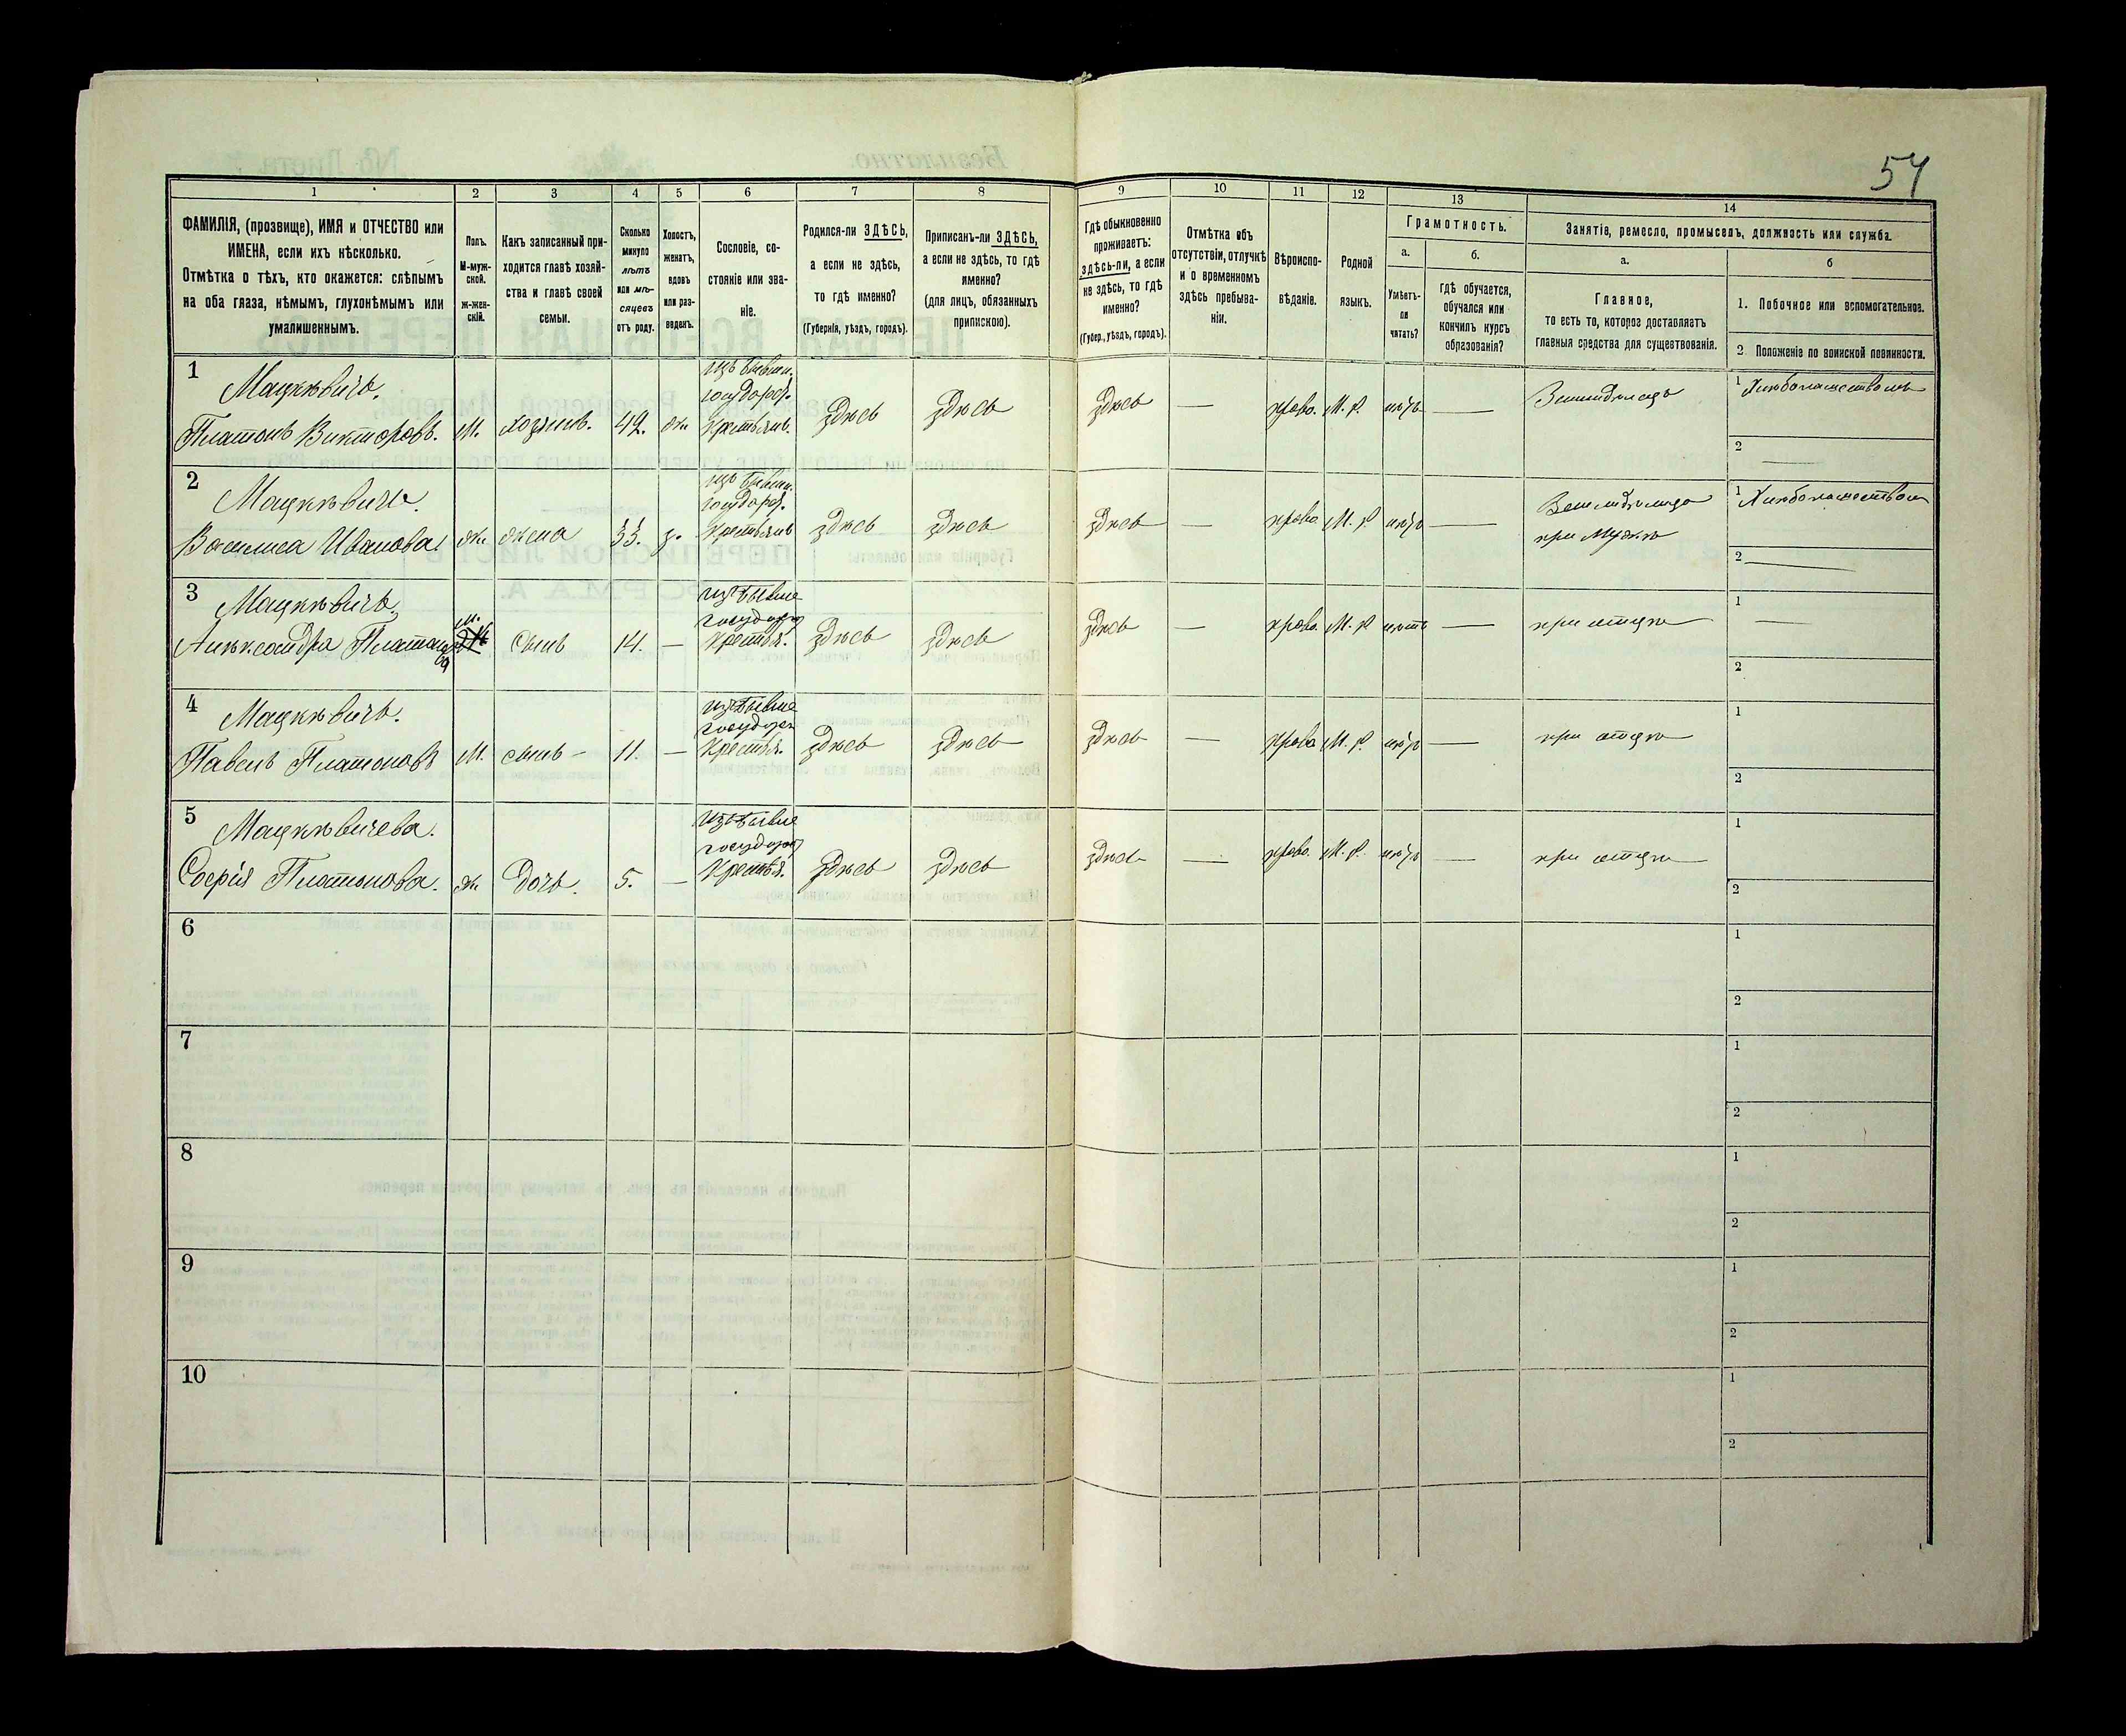 54
1
2
3
4
5
6
7
8
9
10
11
12
13
14
ФАМИЛІЯ, (прозвище), ИМЯ и ОТЧЕСТВО или
ИМЕНА, если ихъ нѣсколько.
Отмѣтка о тѣхъ, кто окажется: слѣпымъ
на оба глаза, нѣмымъ, глухонѣмымъ или
умалишеннымъ.
Полъ.
М-муж-
ской.
ж-жен-
скій.
Какъ записанный при-
ходится главѣ хозяй-
ства и главѣ своей
семьи.
Сколько
минуло
лѣтъ
или мѣ-
сяцевъ
отъ роду.
Холостъ,
женатъ,
вдовъ
или раз-
веденъ.
Сословіе, со-
стояніе или зва-
ніе.
Родился-ли ЗДѢСЬ,
а если не здѣсь,
то гдѣ именно?
(Губернія, уѣздъ, городъ).
Приписанъ-ли ЗДѢСЬ,
а если не здѣсь, то гдѣ
именно?
(для лицъ, обязанныхъ
припискою).
Гдѣ обыкновенно
проживаетъ:
здѣсь-ли, а если
не здѣсь, то гдѣ
именно?
(Губер., уѣздъ, городъ).
Отмѣтка объ
отсутствіи, отлучкѣ
и о временномъ
здѣсь пребыва-
ніи.
Вѣроиспо-
вѣданіе.
Родной
языкъ.
Грамотность.
а.
Умѣетъ-
ли
читать?
б.
гдѣ обучается,
обучался или
кончилъ курсъ
образованія?
Занятіе, ремесло, промыселъ, должность или служба.
а.
Главное,
то есть то, которое доставляетъ
главныя средства для существованія.
б
1. Побочное или вспомогательное.
2. Положеніе по воинской повинности.
1
Мацкѣвичъ.
Платонъ Викторовъ.
М.
хозяинъ.
49.
ж.
изъ бывш.
государс.
Крестьянъ.
здѣсь
здѣсь
здѣсь
—
право.
М. Р.
нѣтъ
—
Земледѣлецъ
1 Хлѣбопашествомъ
2 —
2
Мацкѣвичъ.
Василиса Иванова.
ж.
жена
33.
з.
изъ бывш.
государс.
Крестьянъ
здѣсь
здѣсь
здѣсь
—
право
М. Р
нѣтъ
—
Земледѣлица
при Мужѣ
1 Хлѣбопашествомъ
2 —
3
Мацкѣвичъ.
Алѣксандра Платонова
М.
сынъ
14.
—
изъ бывше
государ
Крестья.
здѣсь
здѣсь
здѣсь
—
право.
М. Р
нѣтъ
—
при отцѣ
1 —
2
4
Мацкѣвичъ.
Павелъ Платоновъ
М.
сынъ —
11.
—
изъ бывше
государ
Крестья.
здѣсь
здѣсь
здѣсь
—
право
М. Р.
нѣтъ
—
при отцѣ
1
2
5
Мацкѣвичева.
Софія Платонова.
ж.
Дочь.
5.
—
Изъ бывше
государ
Крестья.
здѣсь
здѣсь
здѣсь
—
право.
М. Р.
нѣтъ
—
при отцѣ
1
2
6
1
2
7
1
2
8
1
2
9
1
2
10
1
2